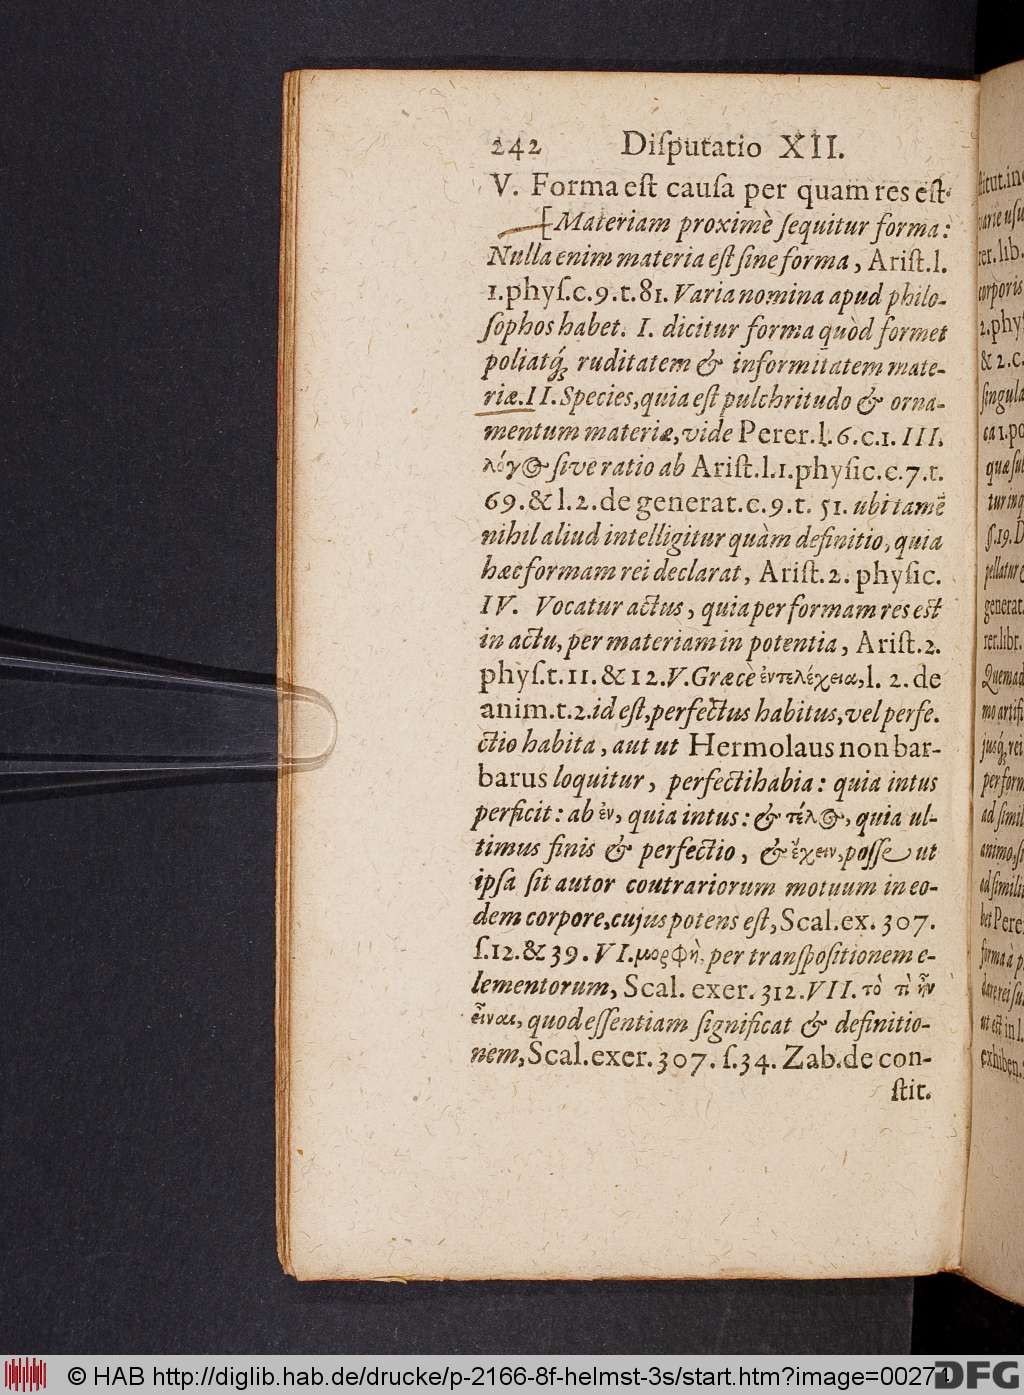 242 Diſputatio XII.
V. Forma eſt cauſa per quam res eſt.
[Materiam proximè ſequitur forma:
Nulla enim materia eſt ſine forma, Ariſt. l.
1. phyſ. c. 9. t. 81. Varia nomina apud philo-
ſophos habet. I. dicitur forma quòd formet
poliatq́; ruditatem & informitatem mate-
riæ. II. Species, quia eſt pulchritudo & orna-
mentum materiæ, vide Perer. l. 6. c. 1. III.
λόγ⊙ ſive ratio ab Ariſt. l. 1. phyſic. c. 7. t.
69. & l. 2. de generat. c. 9. t. 51. ubi tamẽ
nihil aliud intelligitur quàm definitio, quia
hæc formam rei declarat, Ariſt. 2. phyſic.
IV. Vocatur actus, quia per formam res eſt
in actu, per materiam in potentia, Ariſt. 2.
phyſ. t. 11. & 12. V. Græcè ἐντελέχεια, l. 2. de
anim. t. 2. id eſt, perfectus habitus, vel perfe.
ctio habita, aut ut Hermolaus non bar-
barus loquitur, perfectihabia: quia intus
perficit: ab ἐν, quia intus: & τέλ⊙, quia ul-
timus finis & perfectio, & ἔχειν, poſſe ut
ipſa ſit autor coutrariorum motuum in eo-
dem corpore, cujus potens eſt, Scal. ex. 307.
ſ. 12. & 39. VI. μορφὴ, per tranſpoſitionem e-
lementorum, Scal. exer. 312. VII. τὸ τὶ ἦν
εἶναι, quod eſſentiam ſignificat & definitio-
nem, Scal. exer. 307. ſ. 34. Zab. de con-
ſtit.
© HAB http://diglib.hab.de/drucke/p-2166-8f-helmst-3s/start.htm?image=00274
DFG